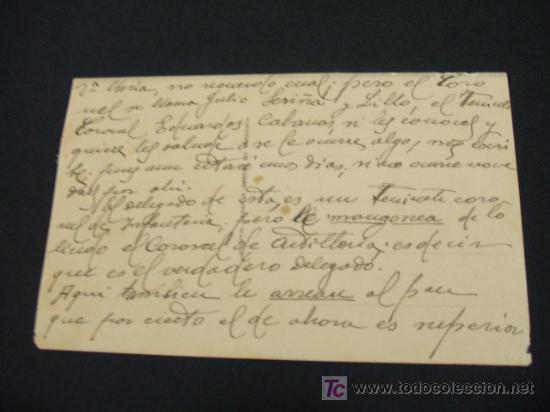 Dª María, no recuerdo cual; pero el Coro
nel se llama Julio y Lillo, el Teniente
Coronel Eduardo Cabanas, si les conoces y
quiere les salude o se le ocurre algo, me escri
be, pues aun estaré unos días, si no ocurre nove
dad por ahí.
El delegado de esta, es un Teniente coro
nel de Infantería, pero le mangonea de lo
lindo el Coronel de Artillería, es decir
que es el verdadero delegado.
Aquí tambien le arrean al pan
que por cierto el de ahora es superior
TC todocoleccion
todocoleccion.net